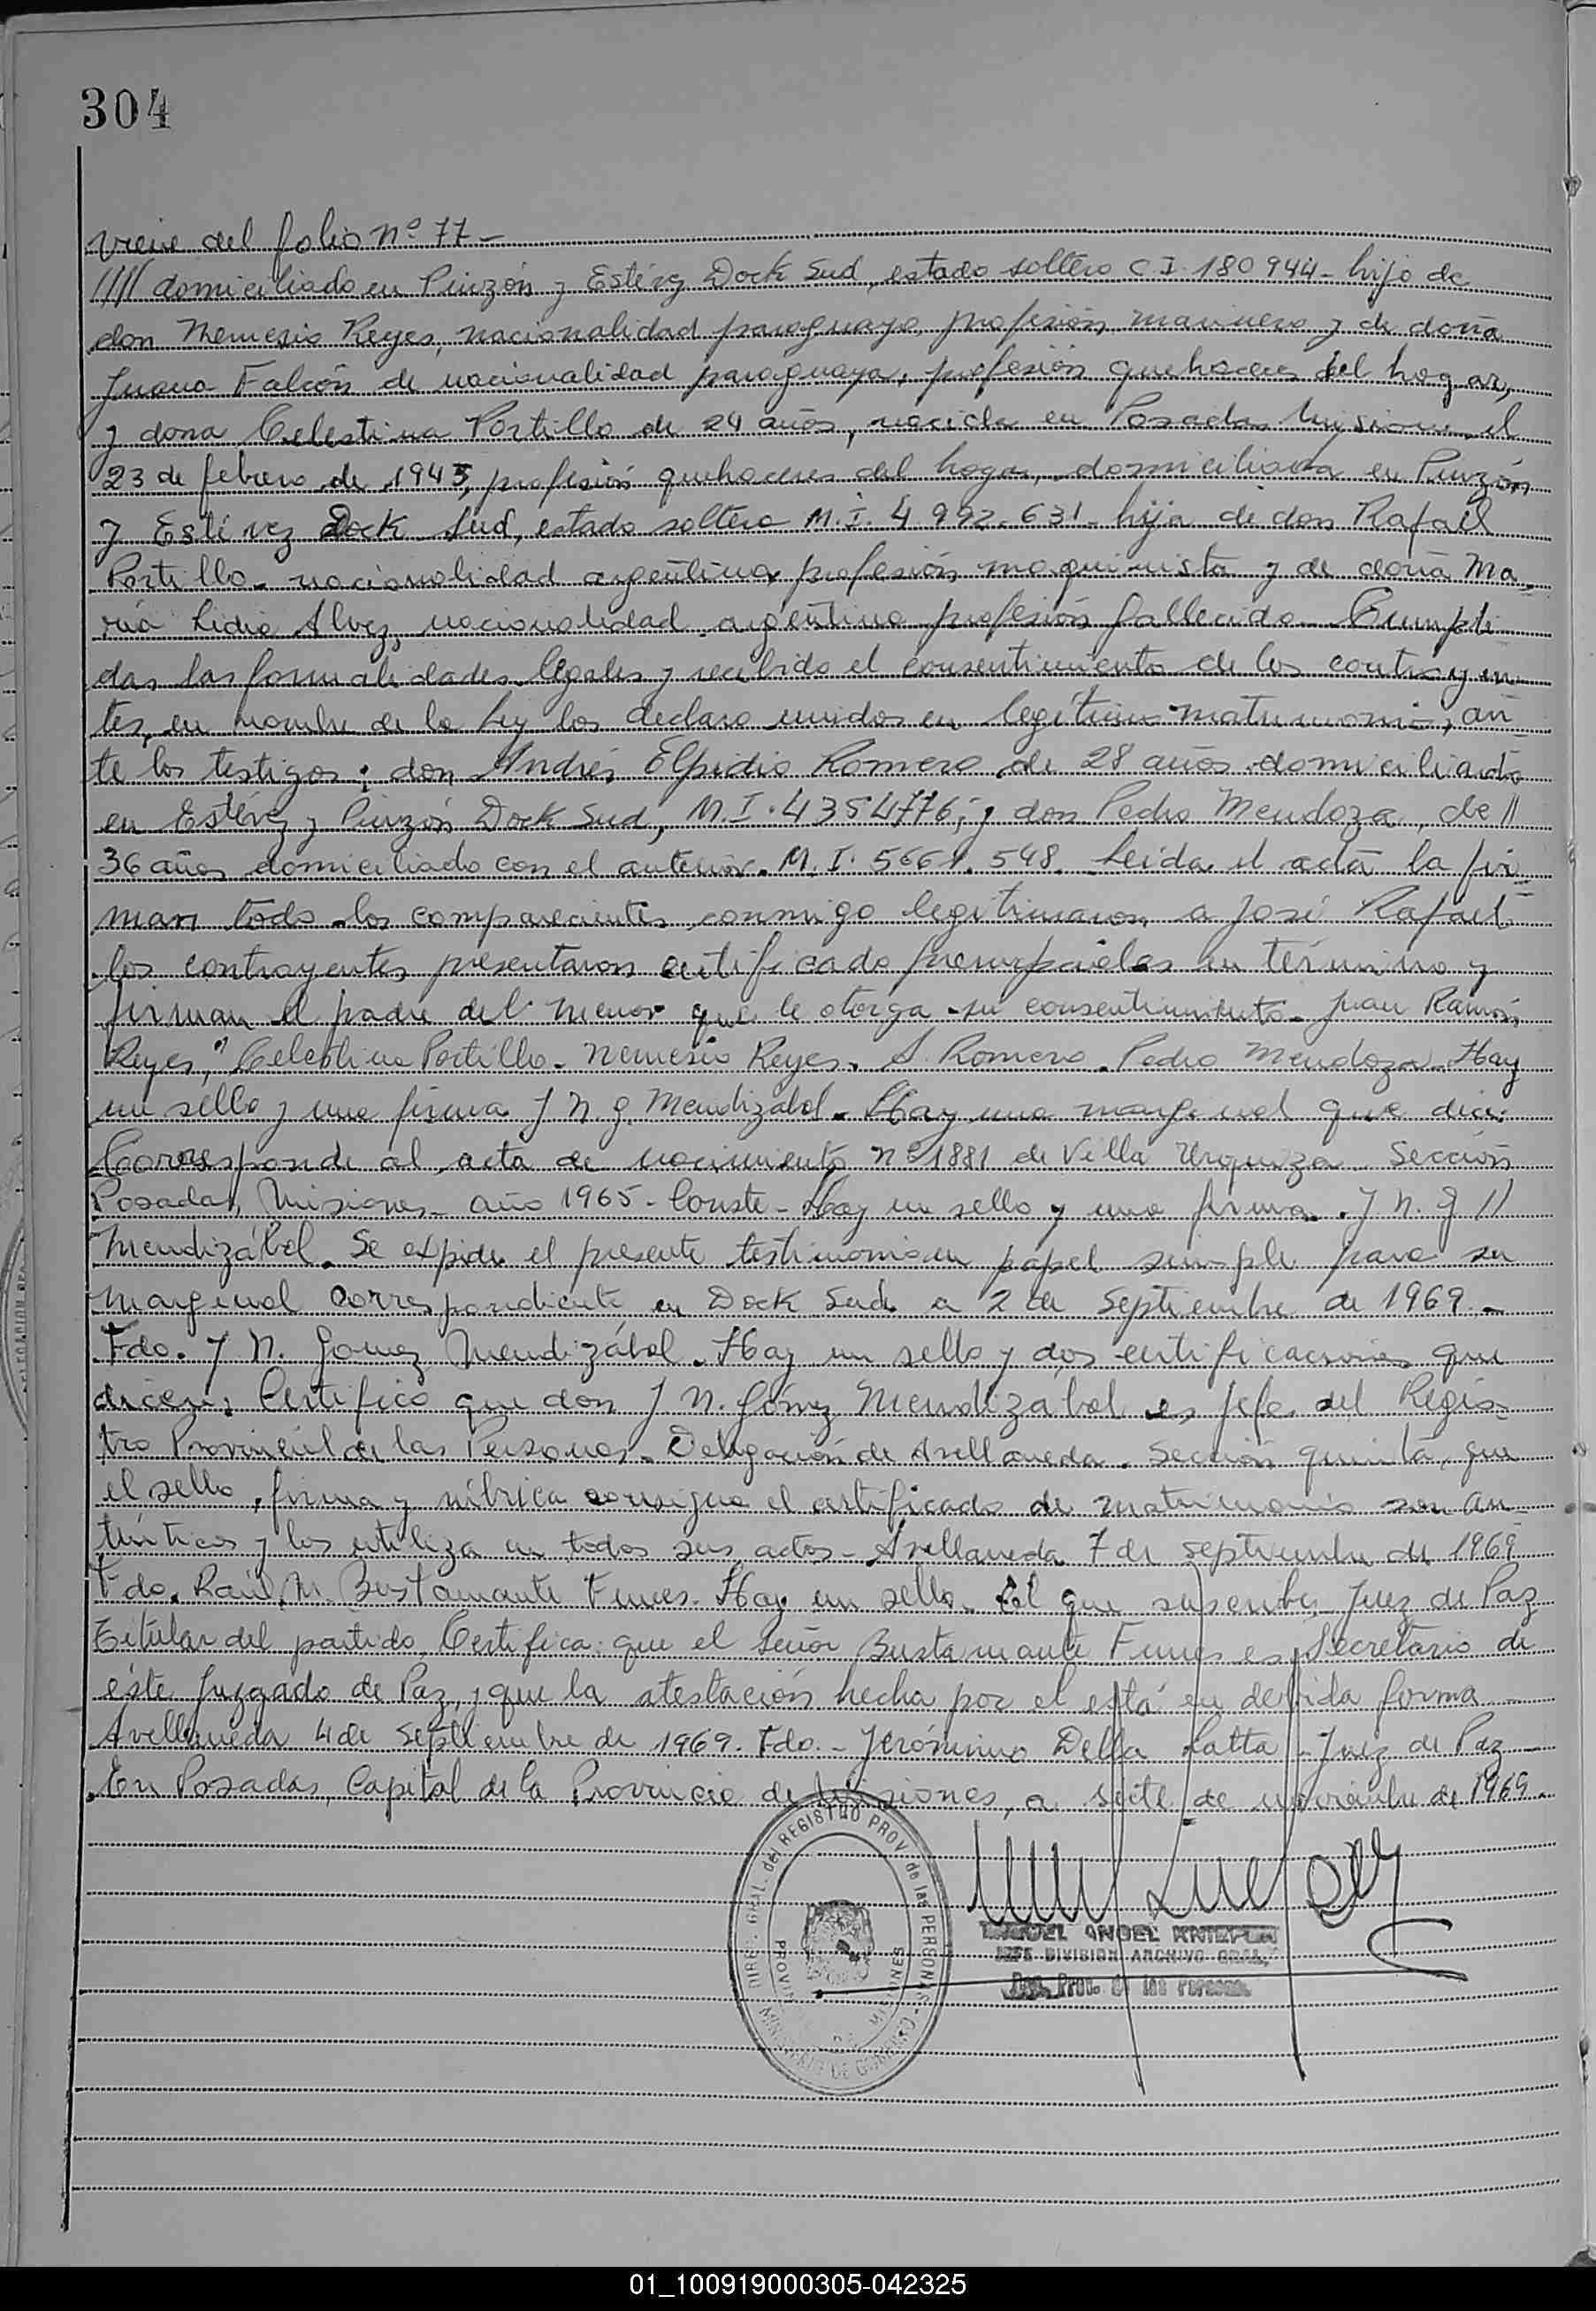 304
Viene del folio nº 77 -
//// domiciliado en Pinzón y Estévez Dock Sud, estado soltero C.I. 180944 - hijo de
don Nemesio Reyes, nacionalidad paraguaya, profesión marinero y de doña
Juana Falcón de nacionalidad paraguaya, profesión quehaceres del hogar,
y doña Celestina Portillo de 24 años, nacida en Posadas Misiones el
23 de febrero de 1945, profesión quehaceres del hogar, domiciliada en Pinzón
y Estévez Dock Sud, estado soltera M.I. 4.992.631 - hija de don Rafael
Portillo - nacionalidad argentina, profesión maquinista y de doña Ma
ría Lidia Alvez, nacionalidad argentina profesión fallecida. Cumpli
das las formalidades legales y recibido el consentimiento de los contrayen
tes, en nombre de la ley los declaro unidos en legítimo matrimonio, an
te los testigos: don Andrés Elpidio Romero de 28 años domiciliado
en Estévez y Pinzón Dock Sud, M.I. 4354776, y don Pedro Mendoza, de //
36 años domiciliado con el anterior. M.I. 5661.548. Leída el acta la fir
man todo los comparecientes conmigo legitimaron a José Rafael
los contrayentes presentaron certificado prenupciales en término y
firman el padre del menor que le otorga su consentimiento - Juan Ramón
Reyes, Celestina Portillo - Nemesio Reyes. A. Romero. Pedro Mendoza - Hay
un sello y una firma J N. G. Mendizábal - Hay una marginal que dice:
Corresponde al acta de nacimiento nº 1881 de Villa Urquiza Sección
Posadas, Misiones - año 1965 - Conste - Hay un sello y una firma. J N. G //
Mendizábal. Se expide el presente testimonio en papel simple para su
marginal correspondiente en Dock Sud a 2 de Septiembre de 1969 -
Fdo. J. N. Gomez Mendizábal. Hay un sello y dos certificaciones que
dicen: Certifico que don J N. Gómez Mendizábal es jefe del Regis
tro Provincial de las Personas - Delegación de Avellaneda. Sección quinta, que
el sello, firma y rúbrica consigna el certificado de matrimonio son au
ténticos y los utiliza en todos sus actos - Avellaneda 7 de septiembre de 1969
Fdo. Raúl M. Bustamante Funes. Hay un sello. El que suscribe, Juez de Paz
Titular del partido, Certifica: que el señor Bustamante Funes es Secretario de
éste Juzgado de Paz, y que la atestación hecha por el está en debida forma
Avellaneda 4 de Septiembre de 1969. Fdo. - Jerónimo Della Latta - Juez de Paz
En Posadas, Capital de la Provincia de Misiones, a siete de noviembre de 1969.
DIREC. GRAL. del REGISTRO PROV. de las PERSONAS
PROVINCIA DE MISIONES
MINISTERIO DE GOBIERNO
MIGUEL ANGEL
JEFE DIVISION ARCHIVO GRAL.
Reg. Prov. de las Personas
01_100919000305-042325